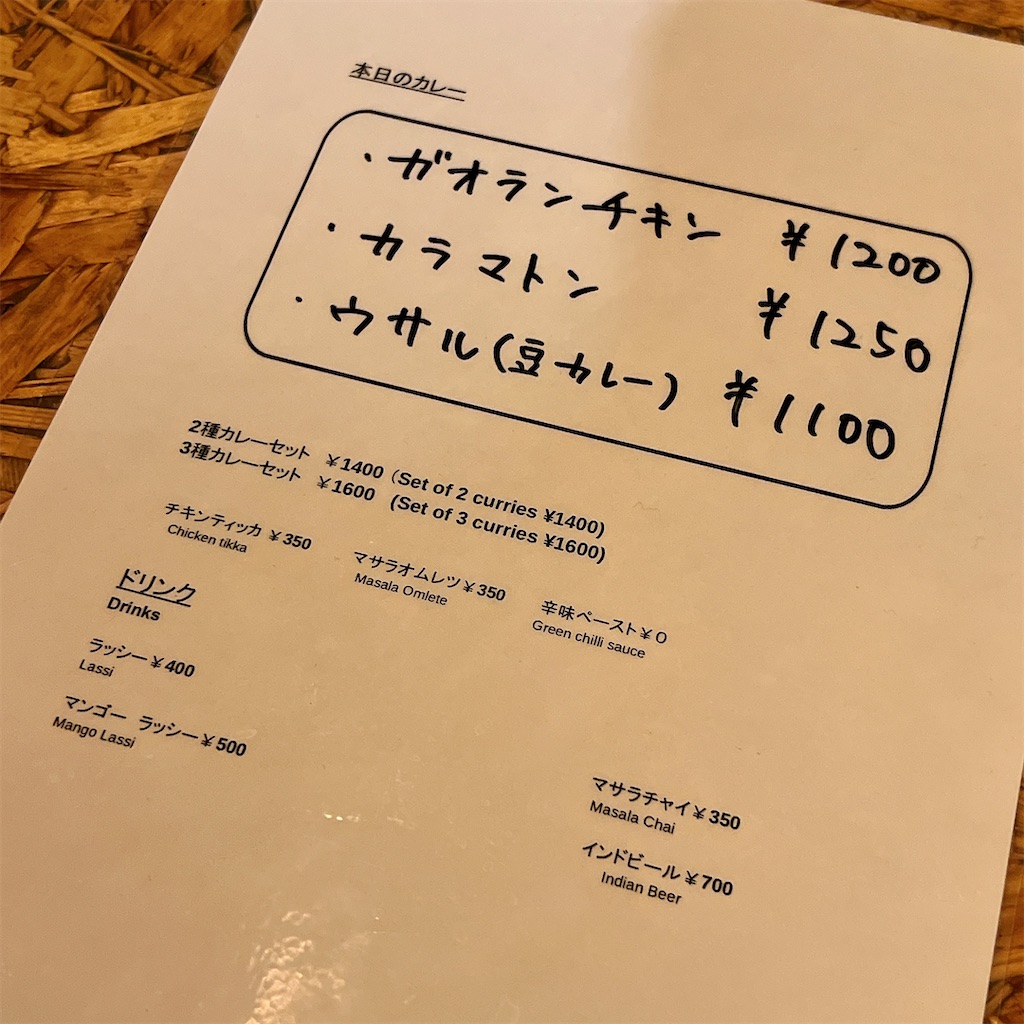 本日のカレー
・ガオランチキン ¥1200
・カラマトン ¥1250
・ウサル(豆カレー) ¥1100
2種カレーセット ¥1400 (Set of 2 curries ¥1400)
3種カレーセット ¥1600 (Set of 3 curries ¥1600)
チキンティッカ ¥350
Chicken tikka
マサラオムレツ¥350
Masala Omlete
辛味ペースト¥0
Green chilli sauce
ドリンク
Drinks
ラッシー¥400
Lassi
マンゴー ラッシー¥500
Mango Lassi
マサラチャイ¥350
Masala Chai
インドビール¥700
Indian Beer